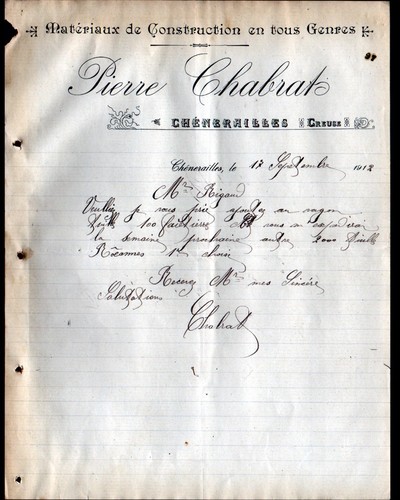 Matériaux de Construction en tous Genres
Pierre Chabrat
CHÉNERAILLES (CREUSE)
Chénerailles, le 17 Septembre 1912
Mr Rigaud
Veuillez je vous prie ajouter au wagon
tuiles 100 faitières et vous
la semaine prochaine autre 2000 tuiles
Roannes 1er choix
Recevez Mr mes Sincère
Salutations
Chabrat